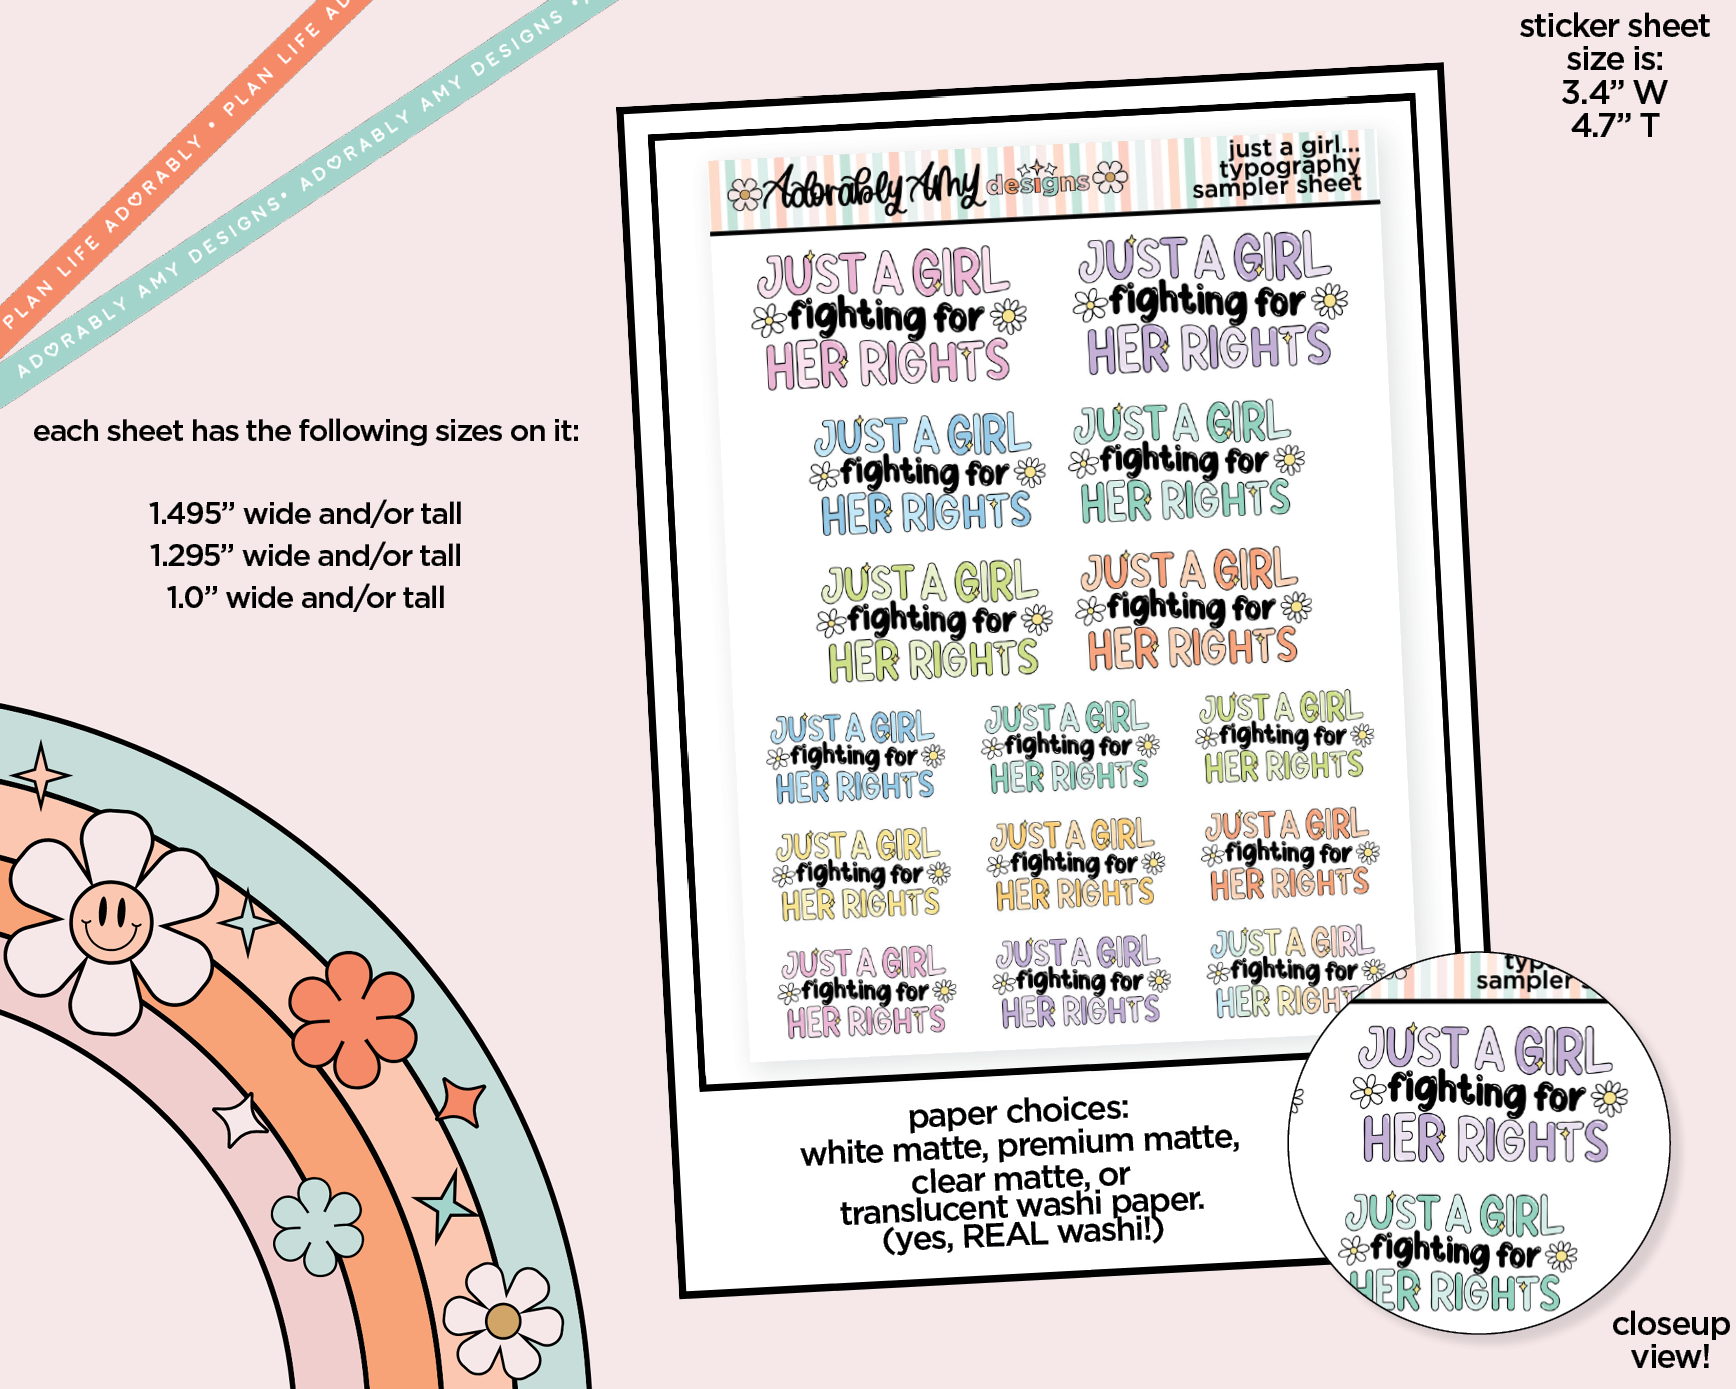 PLAN LIFE ADORABLY • PLAN LIFE AD
ADORABLY AMY DESIGNS • ADORABLY AMY DESIGNS •
sticker sheet
size is:
3.4” W
4.7” T
each sheet has the following sizes on it:
1.495” wide and/or tall
1.295” wide and/or tall
1.0” wide and/or tall
Adorably Amy designs
just a girl...
typography
sampler sheet
JUST A GIRL
fighting for
HER RIGHTS
JUST A GIRL
fighting for
HER RIGHTS
JUST A GIRL
fighting for
HER RIGHTS
JUST A GIRL
fighting for
HER RIGHTS
JUST A GIRL
fighting for
HER RIGHTS
JUST A GIRL
fighting for
HER RIGHTS
JUST A GIRL
fighting for
HER RIGHTS
JUST A GIRL
fighting for
HER RIGHTS
JUST A GIRL
fighting for
HER RIGHTS
JUST A GIRL
fighting for
HER RIGHTS
JUST A GIRL
fighting for
HER RIGHTS
JUST A GIRL
fighting for
HER RIGHTS
JUST A GIRL
fighting for
HER RIGHTS
JUST A GIRL
fighting for
HER RIGHTS
JUST A GIRL
fighting for
HER RIGHT
paper choices:
white matte, premium matte,
clear matte, or
translucent washi paper.
(yes, REAL washi!)
typ
sampler s
JUST A GIRL
fighting for
HER RIGHTS
JUST A GIRL
fighting for
HER RIGHTS
closeup
view!